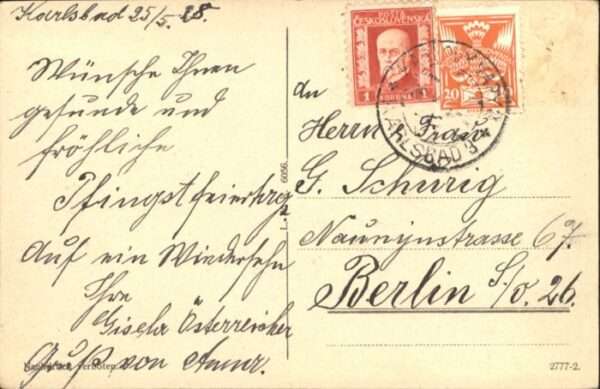 Karlsbad 25/5. 28.
Wünsche Ihnen
gesunde und
fröhliche
Pfingstfeiertage
Auf ein Wiedersehn
Ihre
Gisela Österreicher
Gruß von
POŠTA
ČESKOSLOVENSKÁ
1 KORUNA 1
20
KARLSBAD 3
An
Herrn Frau
G. Schurig
Naunynstrasse 67.
Berlin S/O. 26.
6056.
L.
verboten
2777-2.